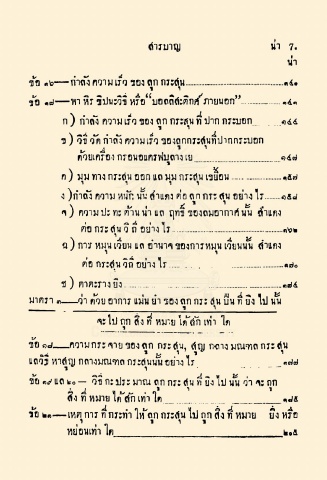 สารบาญ น่า 7.
น่า
ข้อ ๑๖—กำลัง ความ เร็ว ของ ลูก กระสุน ๑๔๑
ข้อ ๑๗—พา หิร ขิปะวิธี หรือ “บอลลิสะติกศ์ ภายนอก” ๑๔๓
ก) กำลัง ความ เร็ว ของ ลูก กระสุน ที่ ปาก กระบอก ๑๔๔
ข) วิธี วัด กำลัง ความ เร็ว ของลูกกระสุนที่ปากกระบอก
ด้วยเครื่อง กรอนอแครฟบูลางเย ๑๔๗
ค) มุม ทาง กระสุน ออก แล มุม กระสุน เขยื้อน ๑๕๗
ง) กำลัง ความ หนัก นั้น สำแดง ต่อ ลูก กระสุน อย่าง ไร ๑๕๘
จ) ความ ปะ ทะ ต้าน น่า แล ฤทธิ์ ของลมอากาศ นั้น สำแดง
ต่อ กระสุน วิถี อย่าง ไร ๑๖๒
ฉ) การ หมุน เวียน แล อำนาจ ของการหมุน เวียนนั้น สำแดง
ต่อ กระสุน วิถีอย่าง ไร ๑๗๑
ช) ตาตรางยิง ๑๗๔
มาตรา ๓—ว่า ด้วย อาการ แม่น ยำ ของ ลูก กระสุน ปืน ที่ ยิง ไป นั้น
จะ ไป ถูก สิ่ง ที่ หมาย ได้ สัก เท่า ใด
ข้อ ๑๘—ความ กระ จาย ของ ลูก กระสุน, สูญ กลาง มณฑล กระสุน
แลวิธี หาสูญ กลางมณฑล กระสุนนั้น อย่าง ไร ๑๗๗
ข้อ ๑๙ แล ๒๐—วิธี กะ ประ มาณ ลูก กระสุน ที่ ยิง ไป นั้น ว่า จะ ถูก
สิ่ง ที่ หมาย ได้ สัก เท่า ใด ๑๘๕
ข้อ ๒๑—เหตุ การ ที่ กระทำ ให้ ลูก กระสุน ไป ถูก สิ่ง ที่ หมาย ยิ่ง หรือ
หย่อนเท่า ใด ๒๑๕